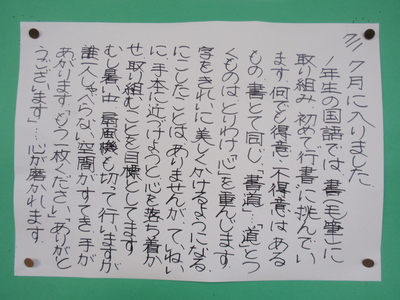 7/1 7月に入りました
1年生の国語では、書(毛筆)に
取り組み、初めて「行書」に挑んでい
ます。何でも得意・不得意はある
もの。書とて同じ。「書道」…「道」とつ
くものはとりわけ「心」を重んじます。
字をきれいに美しくかけるようになる
にこしたことはありませんが、ていねい
に、手本に近づけようと心を落ち着か
せ、取り組むことを目標としてます。
むし暑い中、扇風機も切って行いますが
誰一人しゃべらない空間がすてき。手が
あがります。「もう一枚ください」「ありがと
うございます」…心が磨かれます。